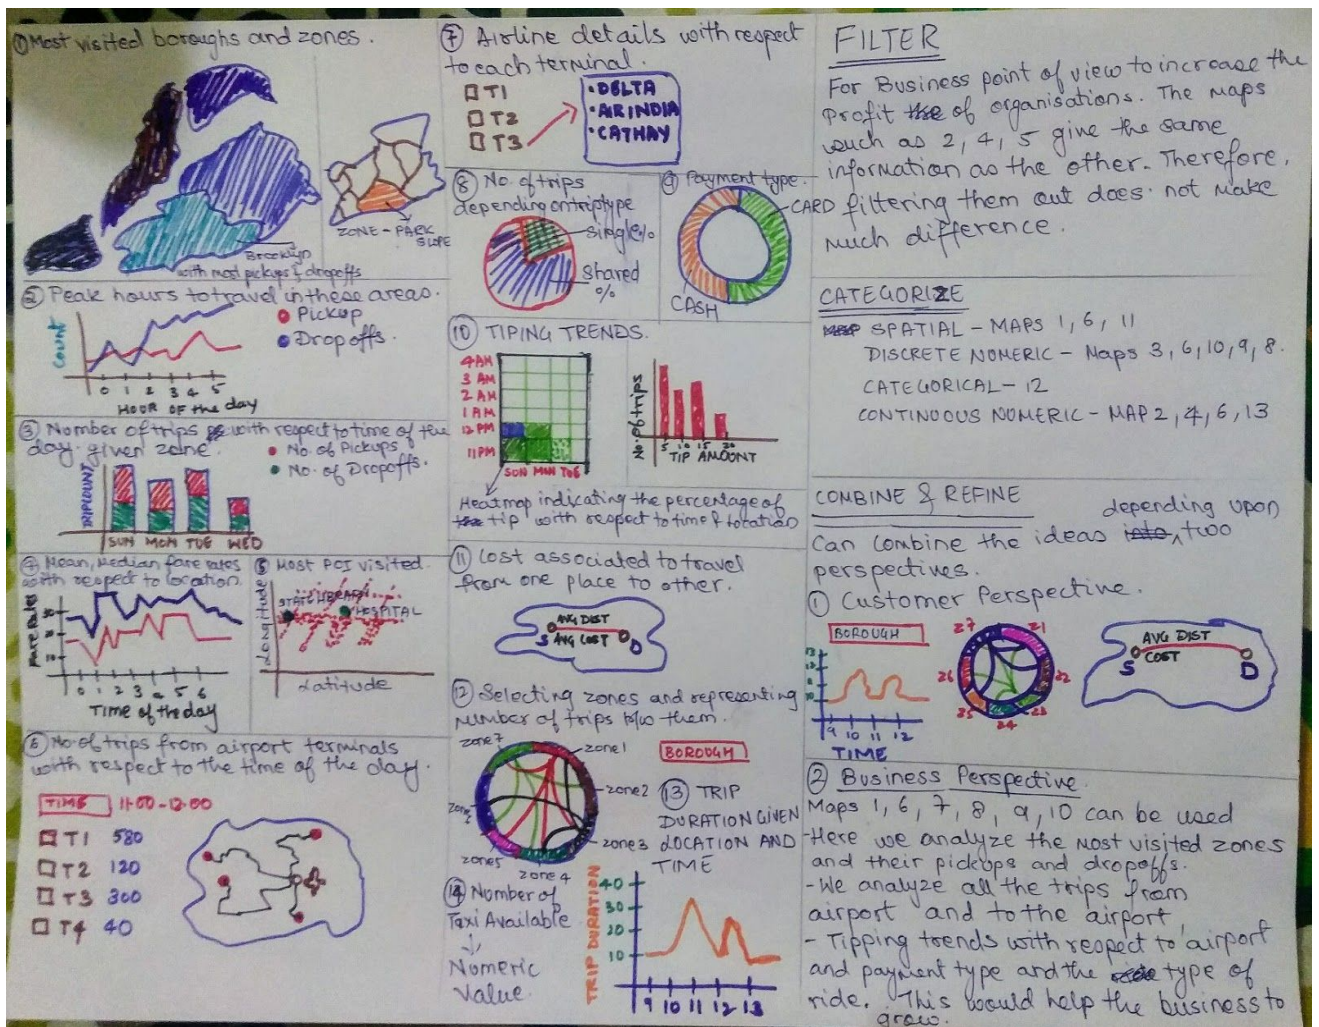 ① Most visited boroughs and zones.
ZONE - PARK
SLOPE
Brooklyn
with most pickups & dropoffs
② Peak hours to travel in these areas.
Count
Pickup
Dropoffs.
0 1 2 3 4 5
HOUR OF the day
③ Number of trips with respect to time of the
day given zone.
No. of Pickups
No. of Dropoffs.
TRIPCOUNT
SUN MON TUE WED
④ Mean, Median fare rates
with respect to location.
Fare Rates
30
20
10
0 1 2 3 4 5 6
Time of the day
⑤ Most POI visited.
Longitude
HOSPITAL
Latitude
⑥ No. of trips from airport terminals
with respect to the time of the day.
TIME 11:00-12:00
T1 580
T2 120
T3 300
T4 40
⑦ Airline details with respect
to each terminal.
T1
T2
T3
• DELTA
• AIR INDIA
• CATHAY
⑧ No. of trips
depending on triptype
single%
Shared
%
⑨ Payment type.
CARD
CASH
⑩ TIPING TRENDS.
4AM
3 AM
2 AM
1 AM
12 PM
11PM
SUN MON TUE
No. of trips
5 10 15 20
TIP AMOUNT
Heatmap indicating the percentage of
tip with respect to time & location
⑪ Cost associated to travel
from one place to other.
AVG DIST
S AVG COST D
⑫ Selecting zones and representing
number of trips b/w them.
zone 7
zone1
zone2
zone3
zone 4
zone5
BOROUGH
⑬ TRIP
DURATION GIVEN
LOCATION AND
TIME
TRIP DURATION
40
30
20
10
9 10 11 12 13
⑭ Number of
Taxi Available
↓
Numeric
Value.
FILTER
For Business point of view to increase the
Profit of organisations. The Maps
such as 2, 4, 5 give the same
information as the other. Therefore,
filtering them out does not make
much difference.
CATEGORIZE
SPATIAL - MAPS 1, 6, 11
DISCRETE NUMERIC - Maps 3, 6, 10, 9, 8.
CATEGORICAL - 12
CONTINUOUS NUMERIC - MAP 2, 4, 6, 13
COMBINE & REFINE
depending upon
Can combine the ideas ^ two
perspectives.
① Customer Perspective.
BOROUGH
9 10 11 12
TIME
27 21
26 22
25 24 23
AVG DIST
S COST D
② Business Perspective.
Maps 1, 6, 7, 8, 9, 10 can be used
-Here we analyze the most visited zones
and their pickups and dropoffs.
-We analyze all the trips from
airport and to the airport,
- Tipping trends with respect to airport
and payment type and the type of
ride. This would help the business to
grow.